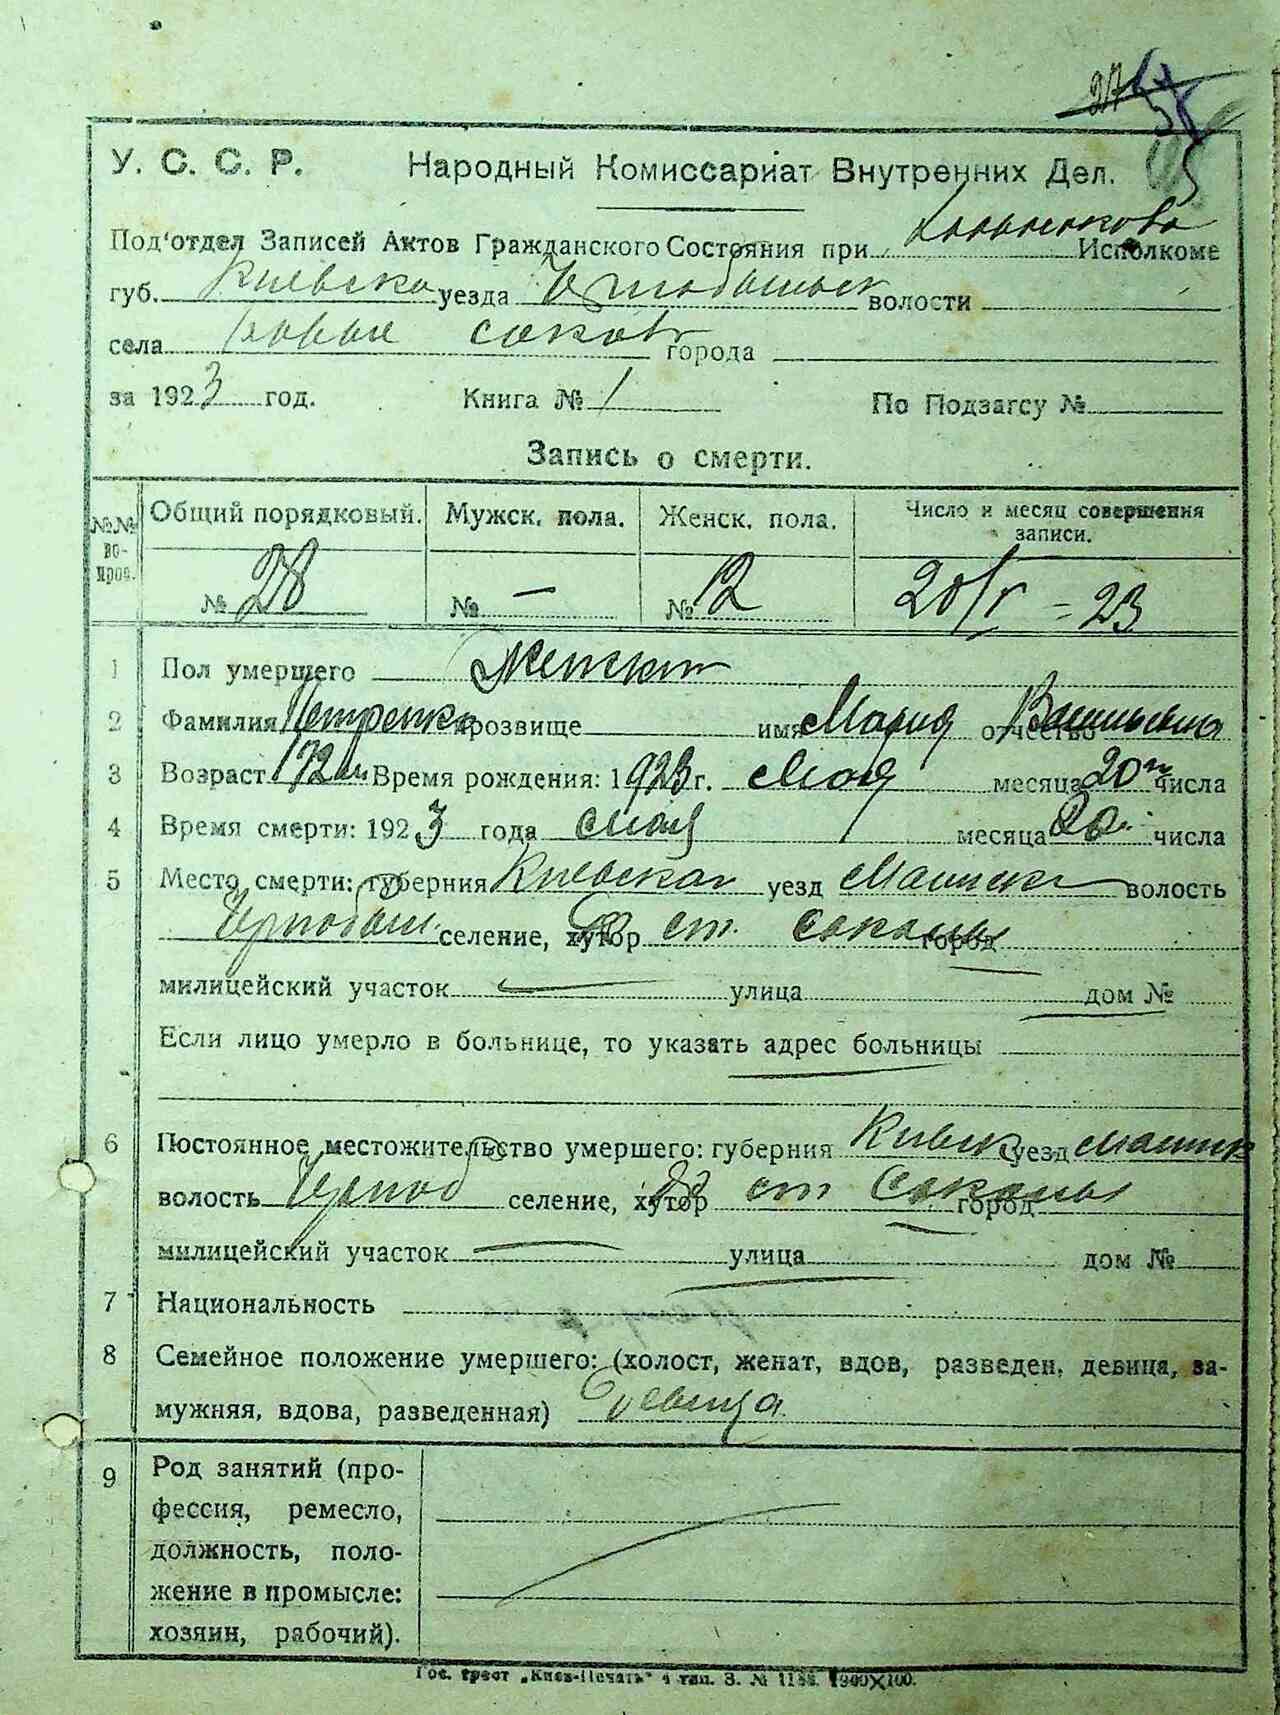 27
У. С. С. Р. Народный Комиссариат Внутренних Дел.
Под'отдел Записей Актов Гражданского Состояния при Исполкоме
губ. Киевско уезда волости
села города
за 1923 год. Книга № 1 По Подзагсу №
Запись о смерти.
№№ во-прос. Общий порядковый. Мужск. пола. Женск. пола. Число и месяц совершения записи.
№ 28 № — № 12 20/V - 23
1 Пол умершего Женский
2 Фамилия Петренко прозвище имя Мария отчество Васильевна
3 Возраст Время рождения: 1923 г. Мая месяца 20 числа
4 Время смерти: 1923 года мая месяца 20 числа
5 Место смерти: губерния Киевская уезд волость
селение, хутор ст. город
милицейский участок — улица дом №
Если лицо умерло в больнице, то указать адрес больницы
6 Постоянное местожительство умершего: губерния Киевск уезд
волость селение, хутор ст город
милицейский участок — улица дом №
7 Национальность
8 Семейное положение умершего: (холост, женат, вдов, разведен, девица, за-
мужняя, вдова, разведенная) девица
9 Род занятий (про-
фессия, ремесло,
должность, поло-
жение в промысле:
хозяин, рабочий).
Гос. трест „Киев-Печать" 4 тип. З. №